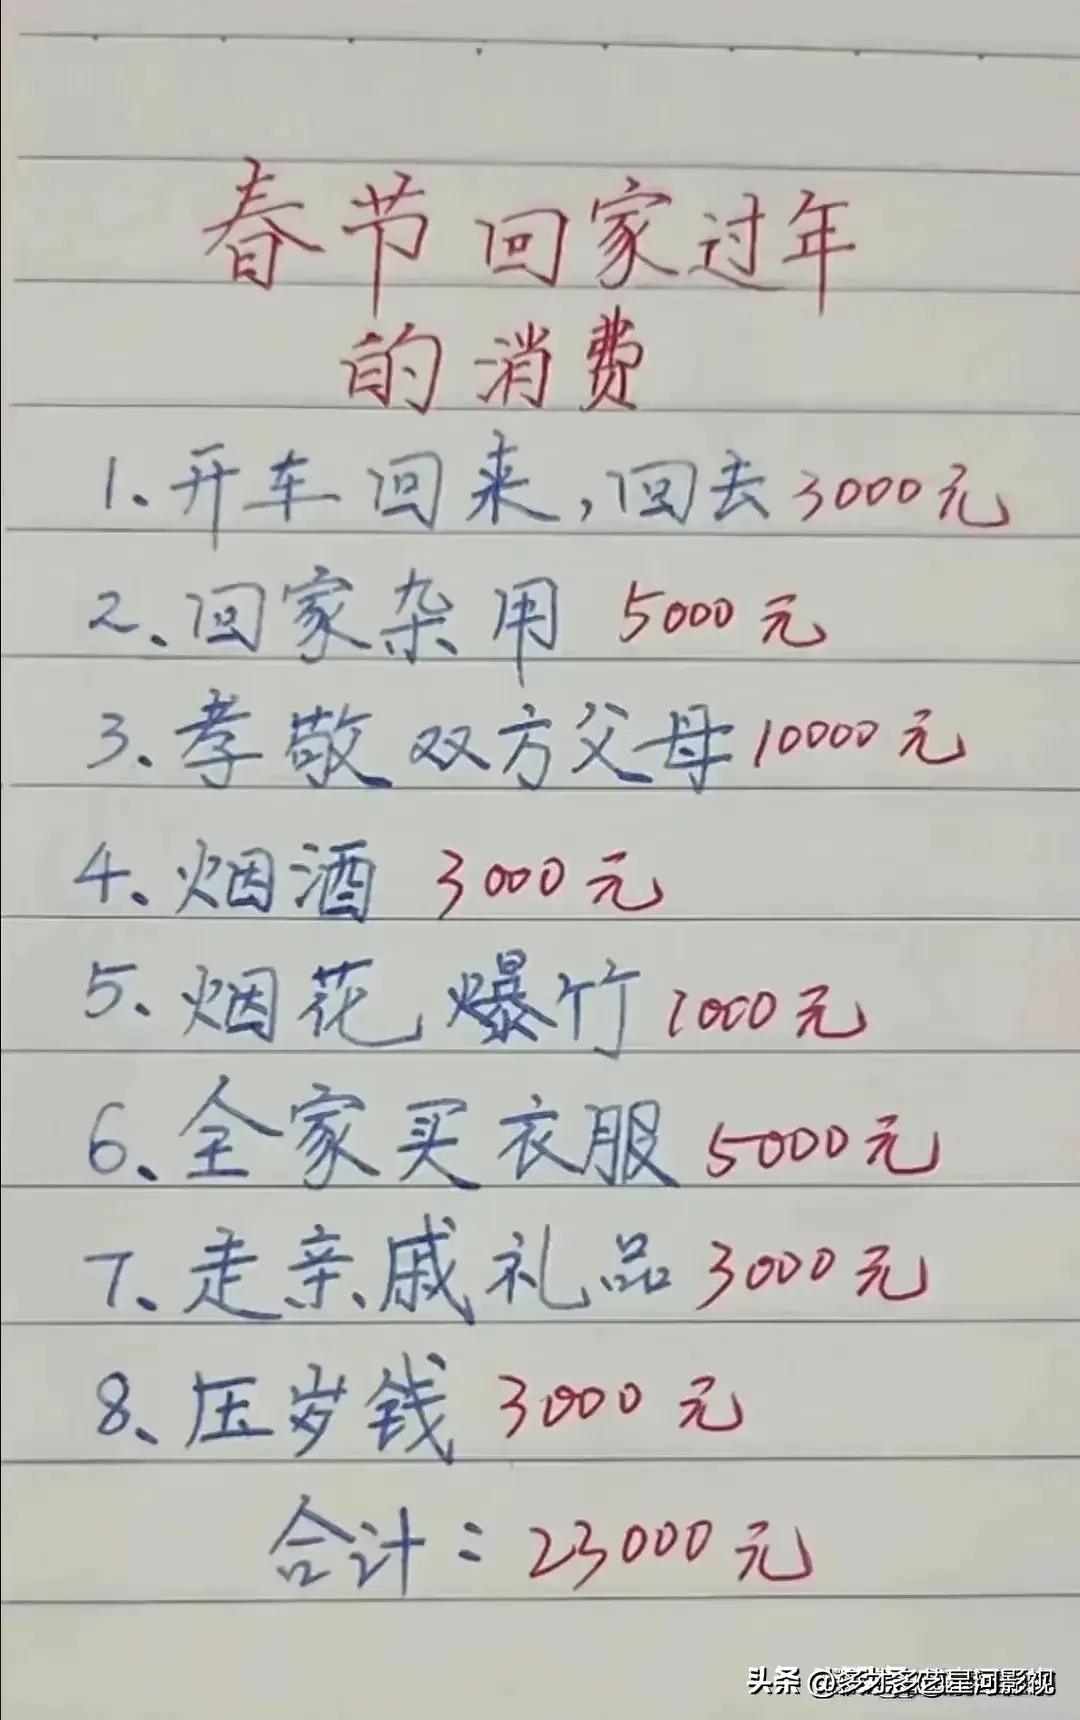 春节回家过年
的消费
1、开车回来,回去3000元
2、回家杂用 5000元
3、孝敬双方父母10000元
4、烟酒 3000元
5、烟花爆竹 1000元
6、全家买衣服 5000元
7、走亲戚礼品3000元
8、压岁钱 3000元
合计:23000元
头条 @多才多艺星河影视